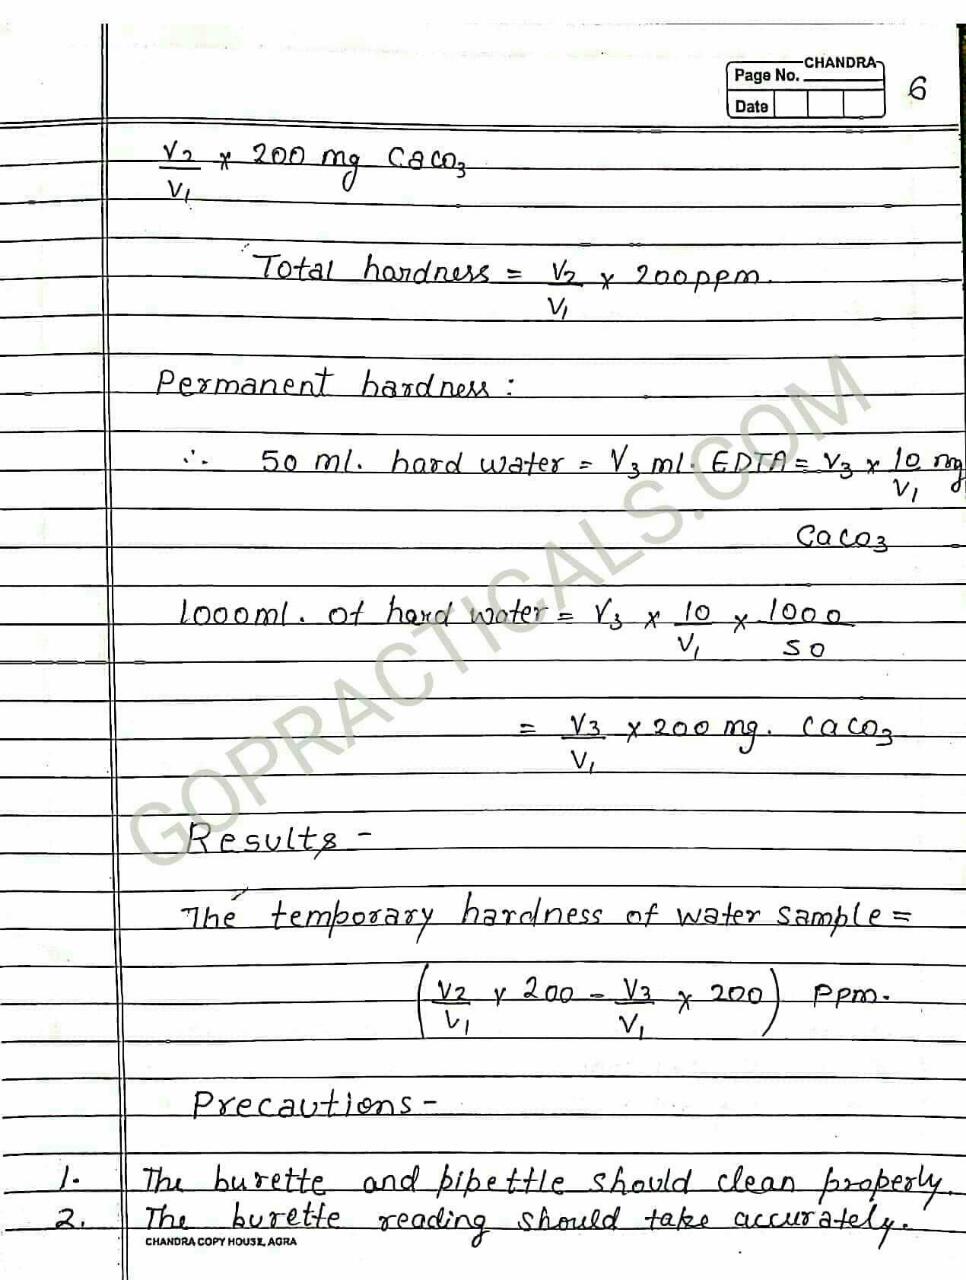 CHANDRA
Page No. 6
Date
V2/V1 x 200 mg CaCO3
Total hardness = V2/V1 x 200 ppm.
Permanent hardness :
∴ 50 ml. hard water = V3 ml. EDTA = V3 x 10/V1 mg
CaCO3
1000 ml. of hard water = V3 x 10/V1 x 1000/50
= V3/V1 x 200 mg. CaCO3
Results -
The temporary hardness of water sample =
(V2/V1 x 200 - V3/V1 x 200) ppm.
Precautions -
1. The burette and pipettle should clean properly.
2. The burette reading should take accurately.
CHANDRA COPY HOUSE, AGRA
GOPRACTICALS.COM